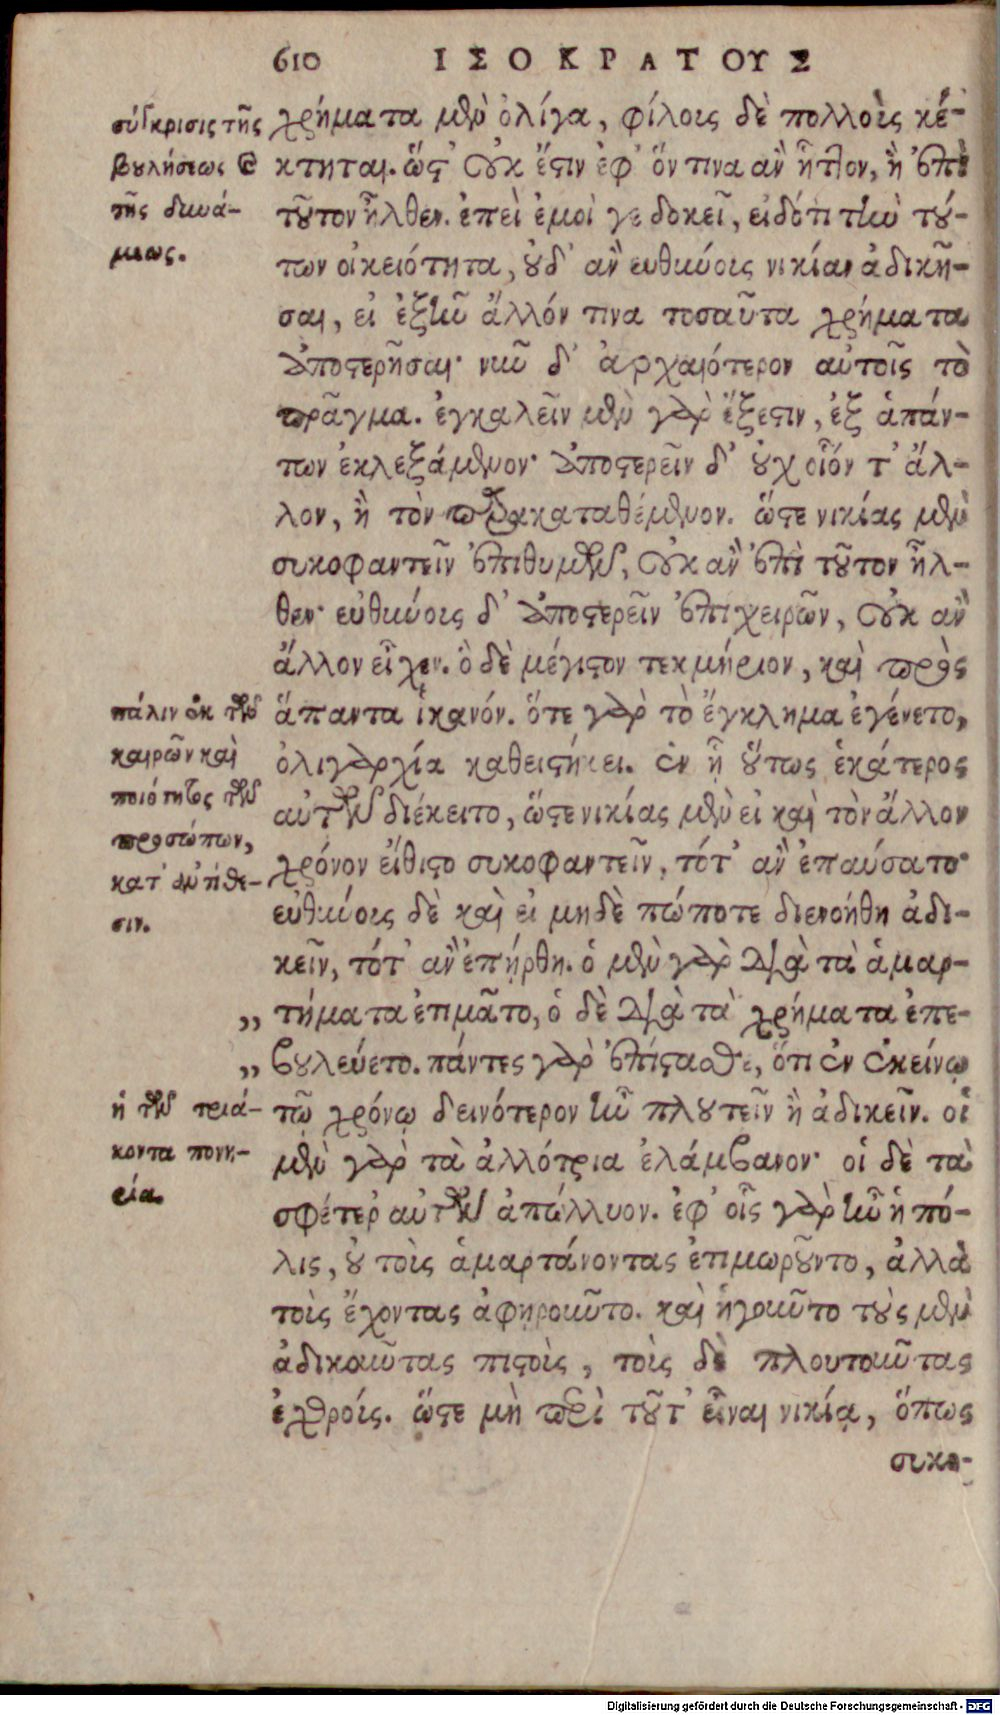 610 ΙΣΟΚΡΑΤΟΥΣ
σύγκρισις τῆς
βουλήσεως καὶ
τῆς δυνά-
μεως.
χρήματα μὲν ὀλίγα, φίλους δὲ πολλοὺς κέ-
κτηται. ὥστ' οὐκ ἔστιν ἐφ' ὅν τινα ἂν ἧττον, ἢ ἐπὶ
τοῦτον ἦλθεν. ἐπεὶ ἐμοί γε δοκεῖ, εἰδότι τὴν τού-
των οἰκειότητα, οὐδ' ἂν εὐθύνους νικίαν ἀδικῆ-
σαι, εἰ ἐξῆν ἄλλόν τινα τοσαῦτα χρήματα
ἀποστερῆσαι· νῦν δ' ἀρχαιότερον αὐτοῖς τὸ
πρᾶγμα. ἐγκαλεῖν μὲν γὰρ ἔξεστιν, ἐξ ἁπάν-
των ἐκλεξάμενον· ἀποστερεῖν δ' οὐχ οἷόν τ' ἄλ-
λον, ἢ τὸν παρακαταθέμενον. ὥστε νικίας μὲν
συκοφαντεῖν ἐπιθυμῶν, οὐκ ἂν ἐπὶ τοῦτον ἦλ-
θεν· εὐθύνους δ' ἀποστερεῖν ἐπιχειρῶν, οὐκ ἂν
ἄλλον εἶχεν. ὃ δὲ μέγιστον τεκμήριον, καὶ πρὸς
πάλιν ἐκ τῶν
καιρῶν καὶ
ποιότητος τῶν
προσώπων,
κατ' ἀντίθε-
σιν.
ἅπαντα ἱκανόν. ὅτε γὰρ τὸ ἔγκλημα ἐγένετο,
ὀλιγαρχία καθειστήκει. ἐν ᾗ οὕτως ἑκάτερος
αὐτῶν διέκειτο, ὥστε νικίας μὲν εἰ καὶ τὸν ἄλλον
χρόνον εἴθιστο συκοφαντεῖν, τότ' ἂν ἐπαύσατο·
εὐθύνους δὲ καὶ εἰ μηδὲ πώποτε διενοήθη ἀδι-
κεῖν, τότ' ἂν ἐπήρθη. ὁ μὲν γὰρ διὰ τὰ ἁμαρ-
„ τήματα ἐτιμᾶτο, ὁ δὲ διὰ τὰ χρήματα ἐπε-
„ βουλεύετο. πάντες γὰρ ἐπίστασθε, ὅτι ἐν ἐκείνῳ
ἡ τῶν τριά-
κοντα πονη-
ρία.
τῷ χρόνῳ δεινότερον ἦν πλουτεῖν ἢ ἀδικεῖν. οἱ
μὲν γὰρ τὰ ἀλλότρια ἐλάμβανον· οἱ δὲ τὰ
σφέτερ' αὐτῶν ἀπώλλυον. ἐφ' οἷς γὰρ ἦν ἡ πό-
λις, οὐ τοὺς ἁμαρτάνοντας ἐτιμωροῦντο, ἀλλὰ
τοὺς ἔχοντας ἀφῃροῦντο. καὶ ἡγοῦντο τοὺς μὲν
ἀδικοῦντας πιστοὺς, τοὺς δὲ πλουτοῦντας
ἐχθρούς. ὥστε μὴ περὶ τοῦτ' εἶναι νικίᾳ, ὅπως
συκο-
Digitalisierung gefördert durch die Deutsche Forschungsgemeinschaft - DFG